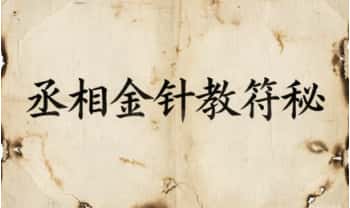 丞相金针教符秘